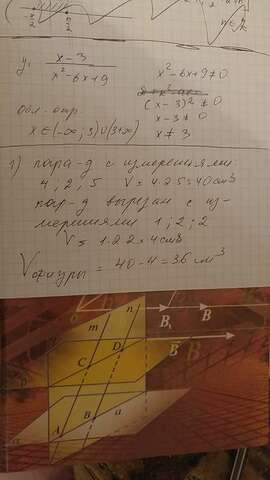 -π/2 π/2
y = x-3 / x²-6x+9
x²-6x+9≠0
(x-3)²≠0
x-3≠0
x≠3
Обл. опр.
x∈(-∞;3)∪(3;+∞)
1) пара-д с измерениями
4; 2; 5 V=4·2·5=40 см³
пар-д вырезан с из-
мерениями 1; 2; 2
V=1·2·2=4 см³
Vфигуры = 40-4=36 см³
m n B₁ B
B
C D
A B a
a